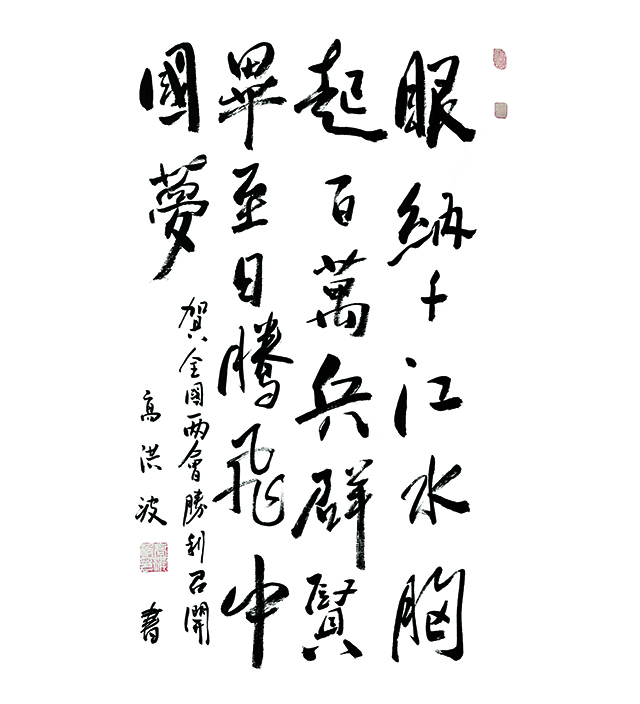 眼納千江水胸
起百萬兵群賢
畢至日騰飛中
國夢
賀全國两會勝利召開
高洪波
書